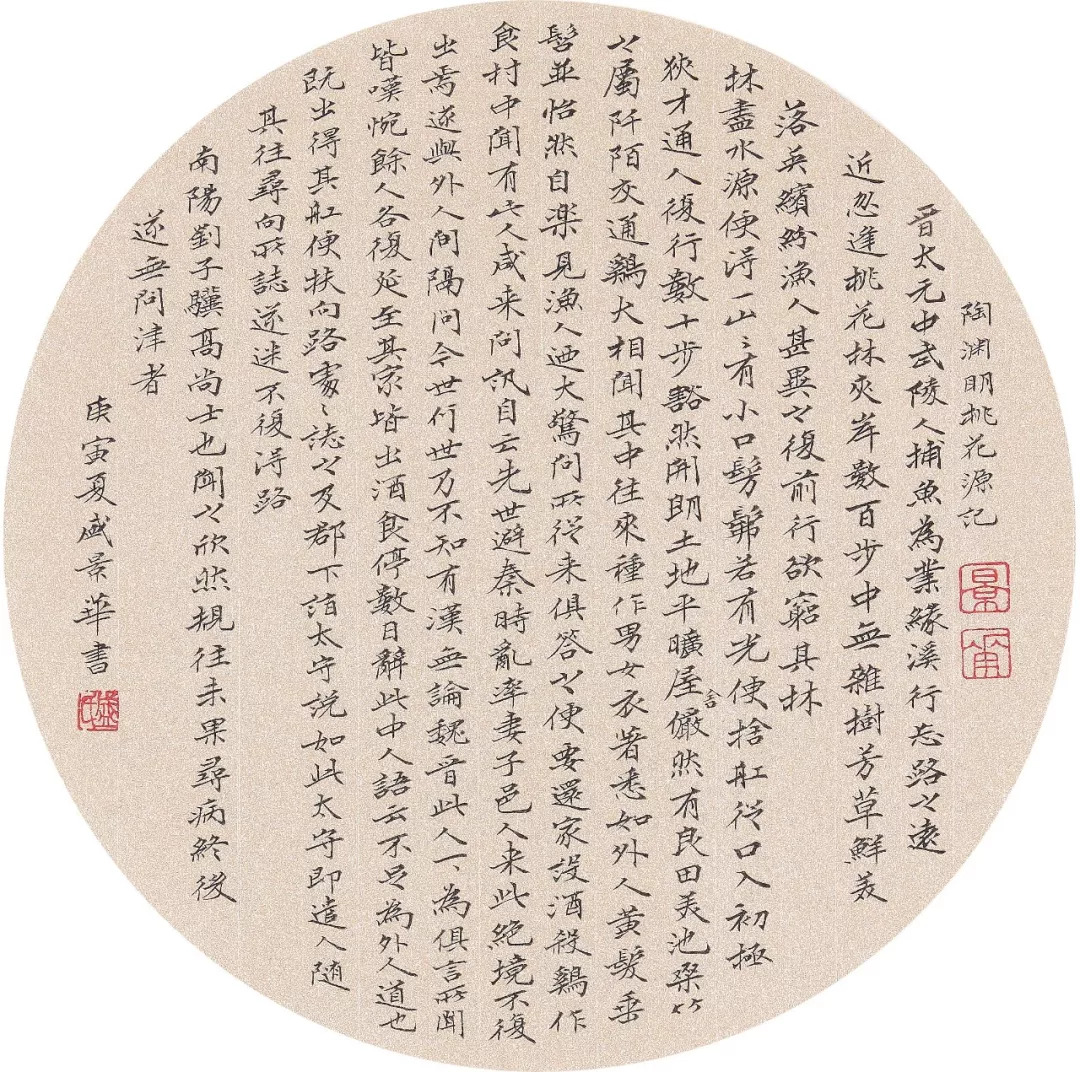 陶渊明桃花源记
晋太元中武陵人捕魚為業緣溪行忘路之遠
近忽逢桃花林夾岸數百步中無雜樹芳草鮮美
落英繽紛漁人甚異之復前行欲窮其林
林盡水源便得一山々有小口髣髴若有光便捨舡從口入初極
狹才通人復行數十步豁然開朗土地平曠屋舍儼然有良田美池桑竹
之屬阡陌交通鷄犬相聞其中往來種作男女衣著悉如外人黃髮垂
髫並怡然自樂見漁人迺大驚問所從来俱答之便要還家設酒殺鷄作
食村中聞有此人咸来問訊自云先世避秦時亂率妻子邑人来此絕境不復
出焉遂與外人間隔問今世何世乃不知有漢無論魏晋此人一々為俱言所聞
皆嘆惋餘人各復延至其家皆出酒食停數日辭此中人語云不足為外人道也
既出得其舡便扶向路處々誌之及郡下詣太守説如此太守即遣人隨
其往尋向所誌遂迷不復得路
南陽劉子驥高尚士也聞之欣然規往未果尋病終後
遂無問津者
庚寅夏盛景華書